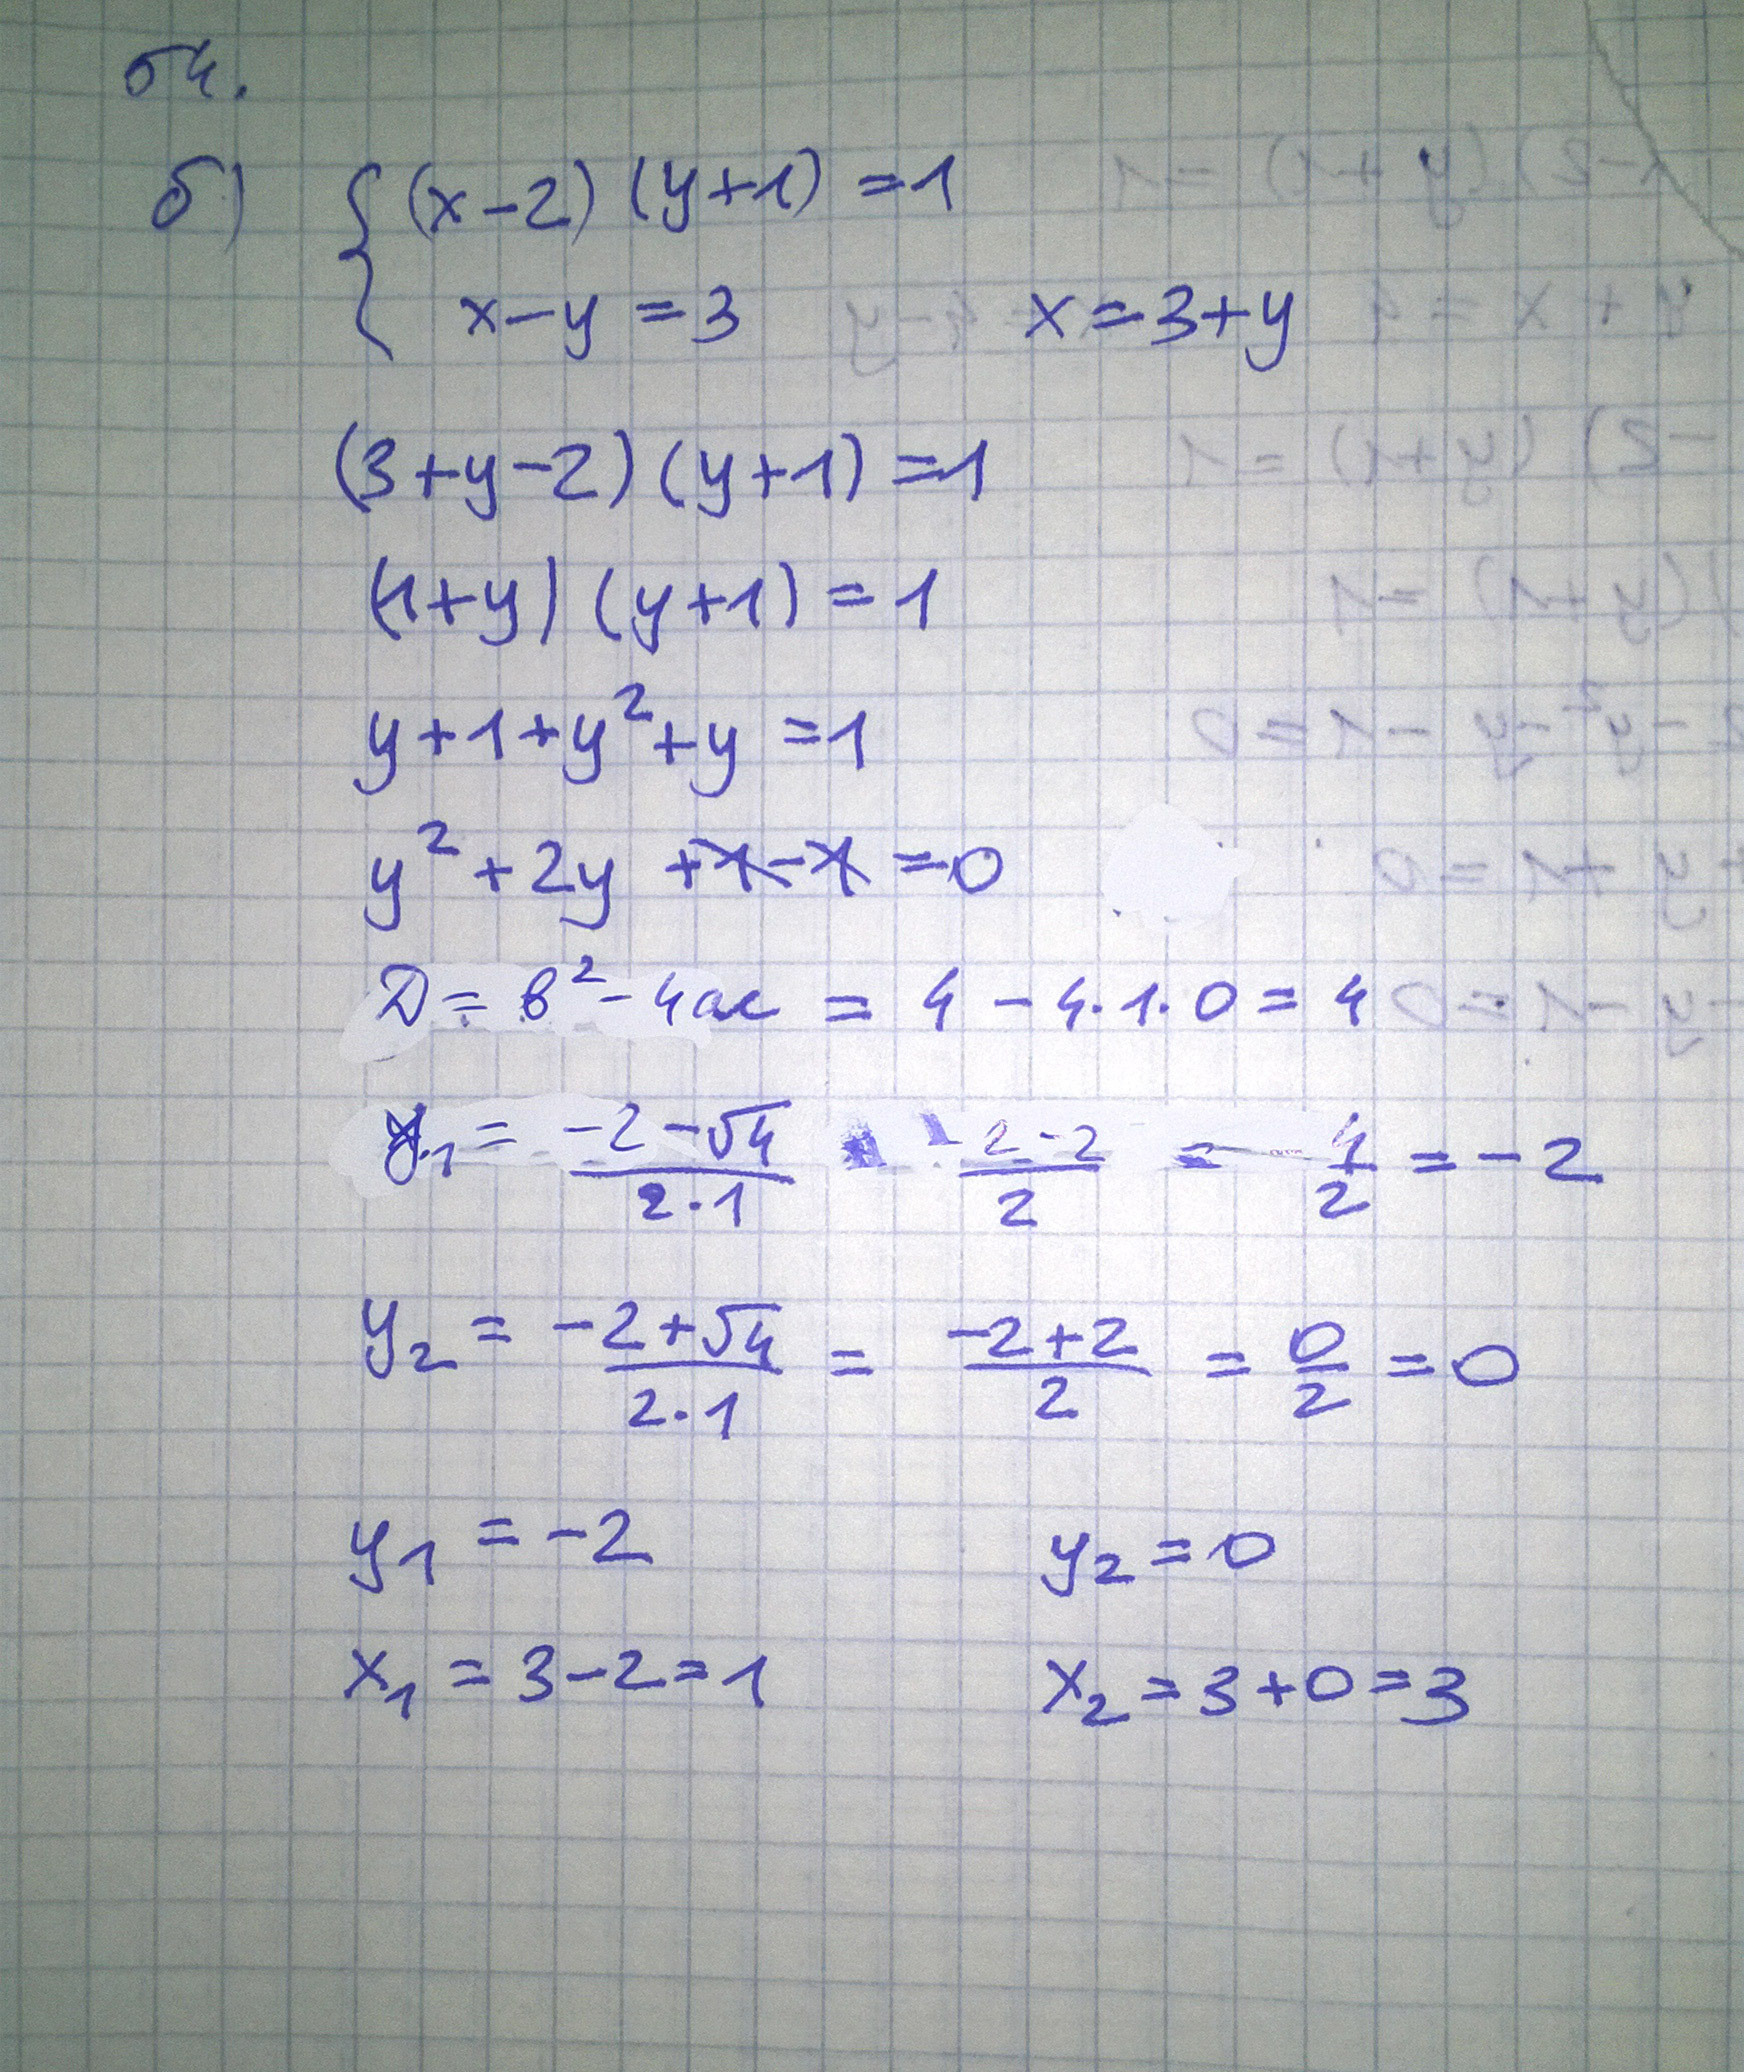 54.
б) { (x-2) (y+1) =1
x-y =3 x=3+y
(3+y-2) (y+1) =1
(1+y) (y+1) = 1
y+1+y²+y =1
y² +2y +1-1 =0
D= b²-4ac = 4 - 4·1·0 = 4
y₁ = (-2-√4)/(2·1) (-2-2)/2 = -4/2 = -2
y₂ = (-2+√4)/(2·1) = (-2+2)/2 = 0/2 = 0
y₁ = -2 y₂ = 0
x₁ = 3-2=1 x₂ = 3+0=3